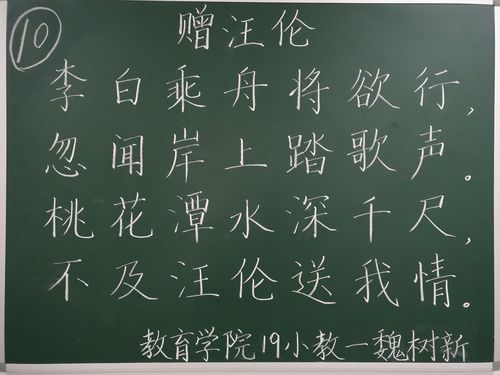 ⑩
赠汪伦
李白乘舟将欲行，
忽闻岸上踏歌声。
桃花潭水深千尺，
不及汪伦送我情。
教育学院19小教一魏树新